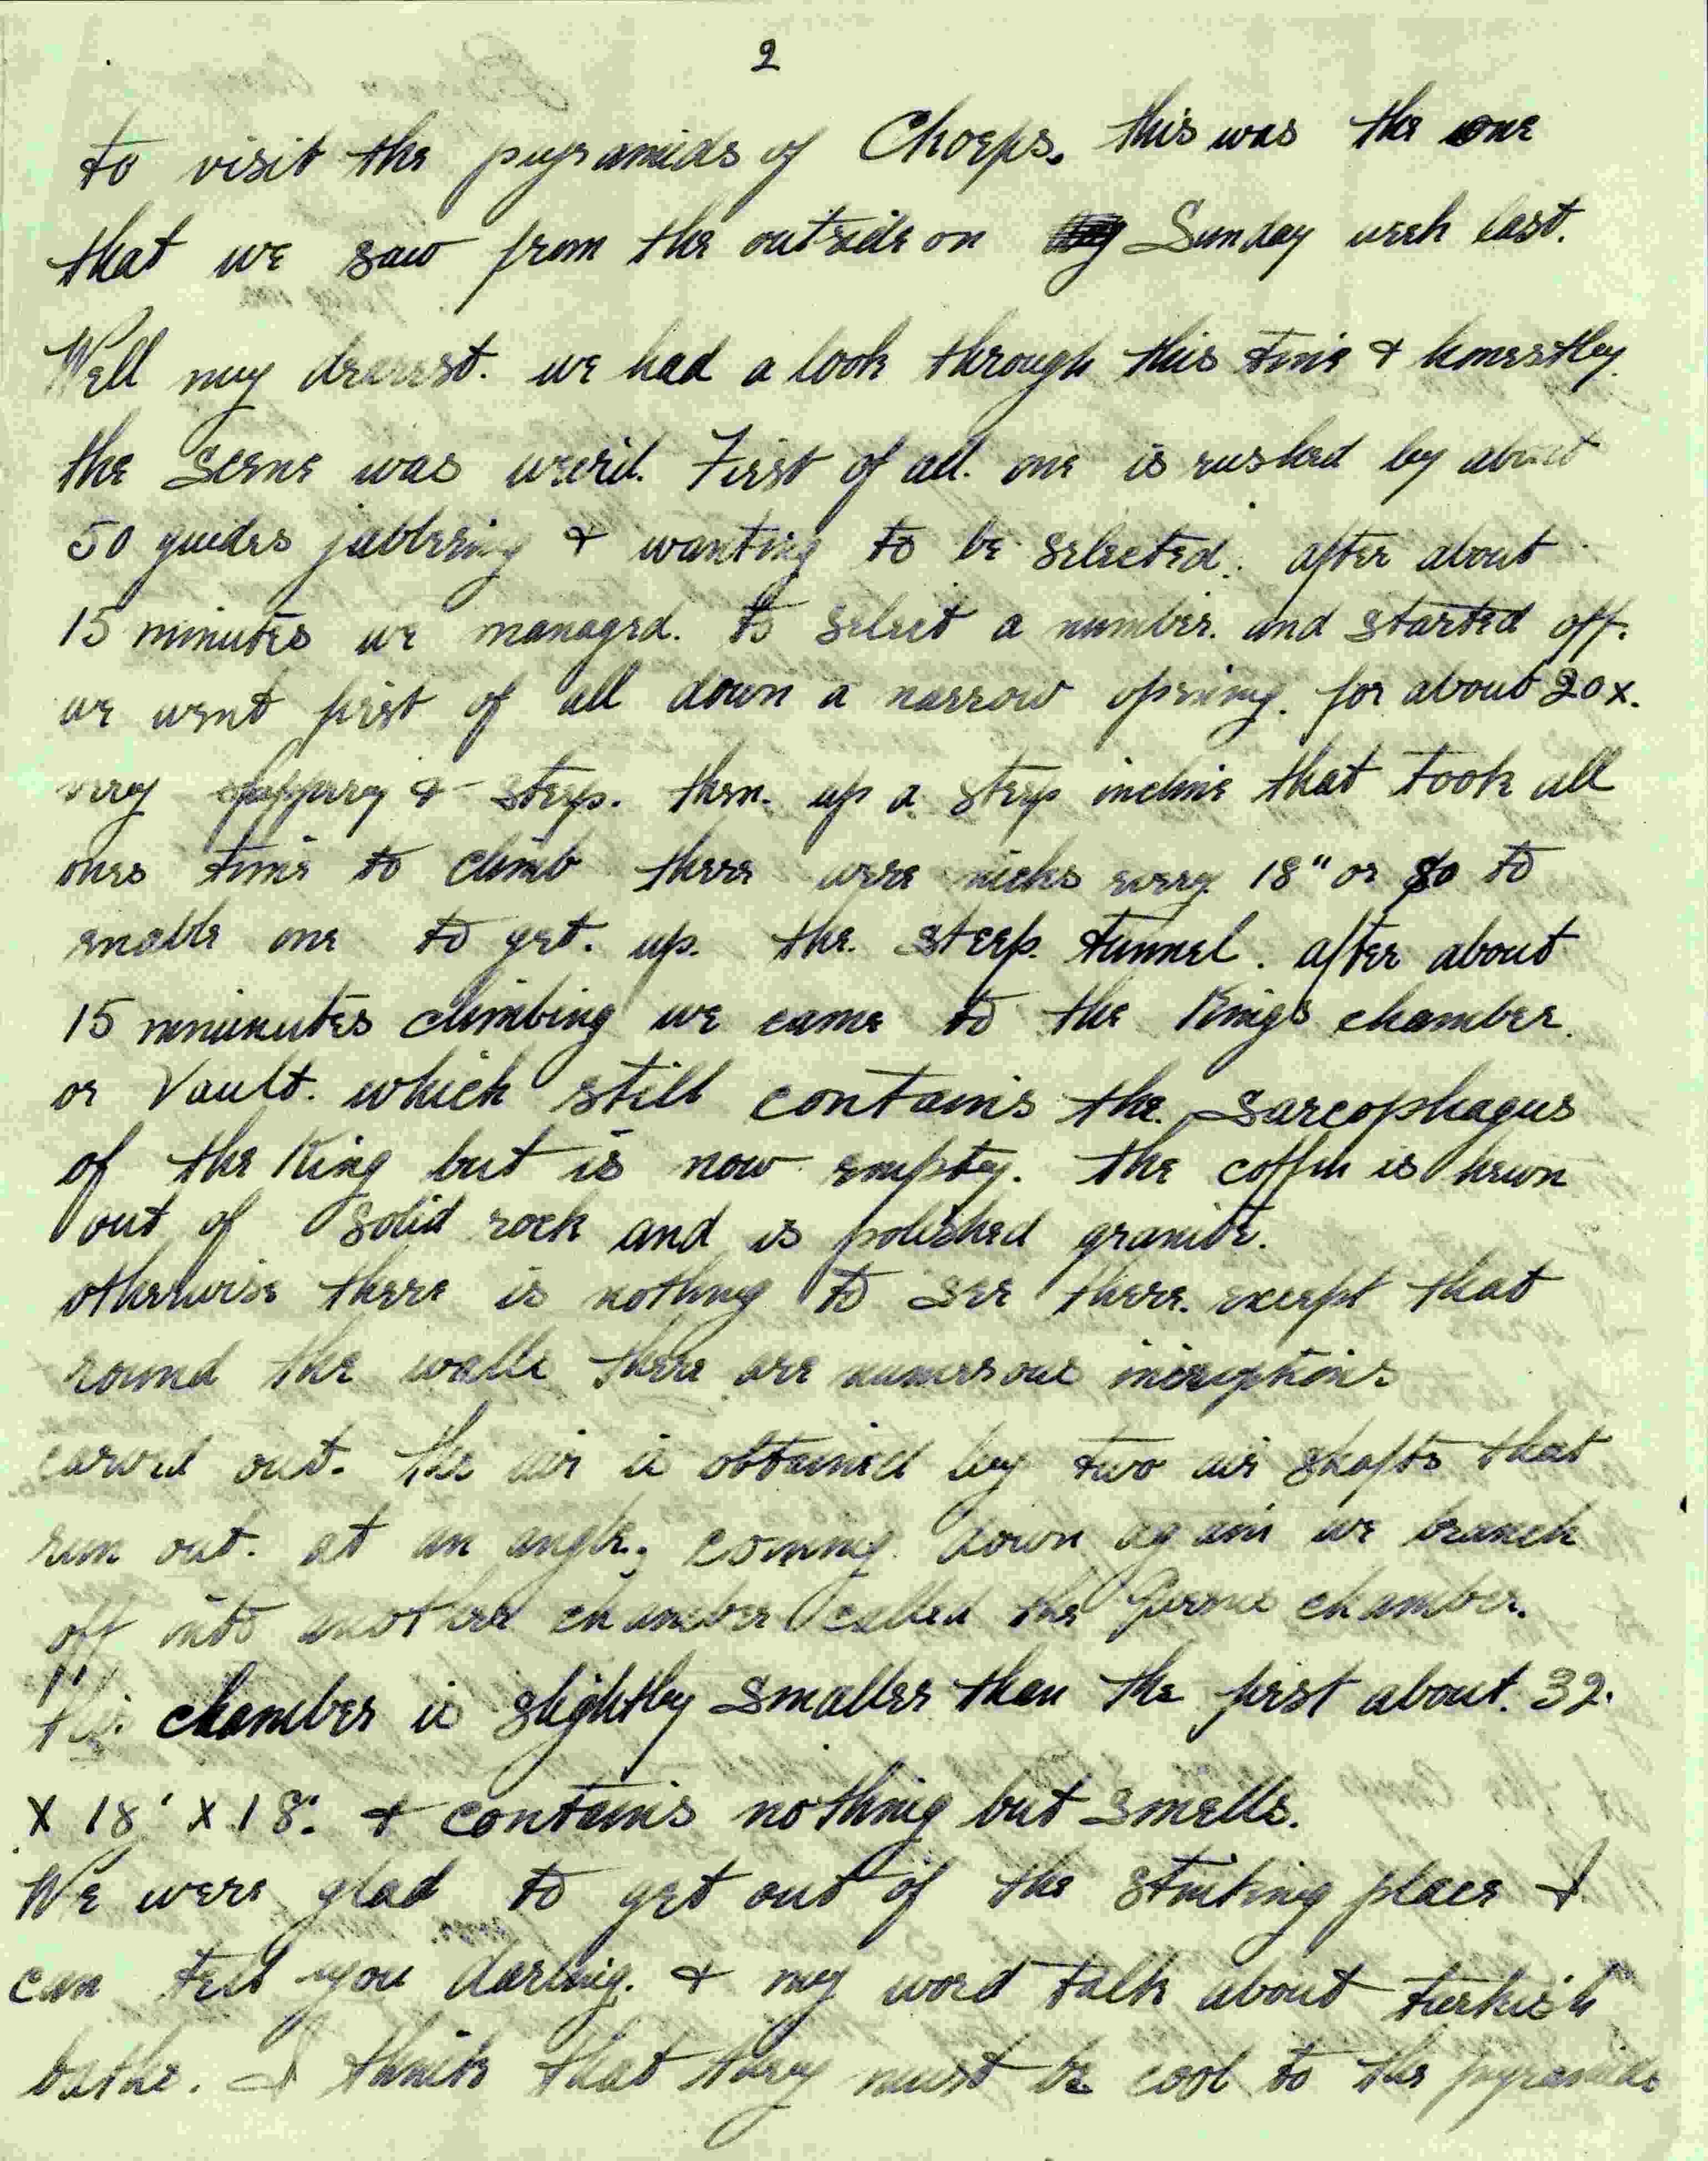 2
to visit the pyramids of Choeps. this was the one
that we saw from the outside on Sunday week last.
Well my dearest. we had a look through this time & honestly.
the scene was weird. First of all. one is rushed by about
50 guides jabbering & wanting to be selected. after about
15 minutes we managed. to select a number. and started off.
we went first of all down a narrow opening. for about 20x.
very & steep. then. up a steep incline that took all
ones time to climb there were nicks every 18" or so to
enable one to get. up. the. steep. tunnel. after about
15 miniunutes climbing we came to the Kings chamber.
or Vault. which still contains the. Sarcophagus
of the King but is now empty. the coffin is hewn
out of solid rock and is polished granite.
otherwise there is nothing to see there. except that
round the walls there are numerous inscriptions
carved out. the air is obtained by two air shafts that
run out. at an angle. coming down again we branch
off into another chamber called the Queens chamber.
this chamber is slightly smaller than the first about. 32.
X 18' X 18'. & contains nothing but smells.
We were glad to get out of the stinking place I
can tell you darling. & my word talk about turkish
baths. I think that they must be cool to the pyramids